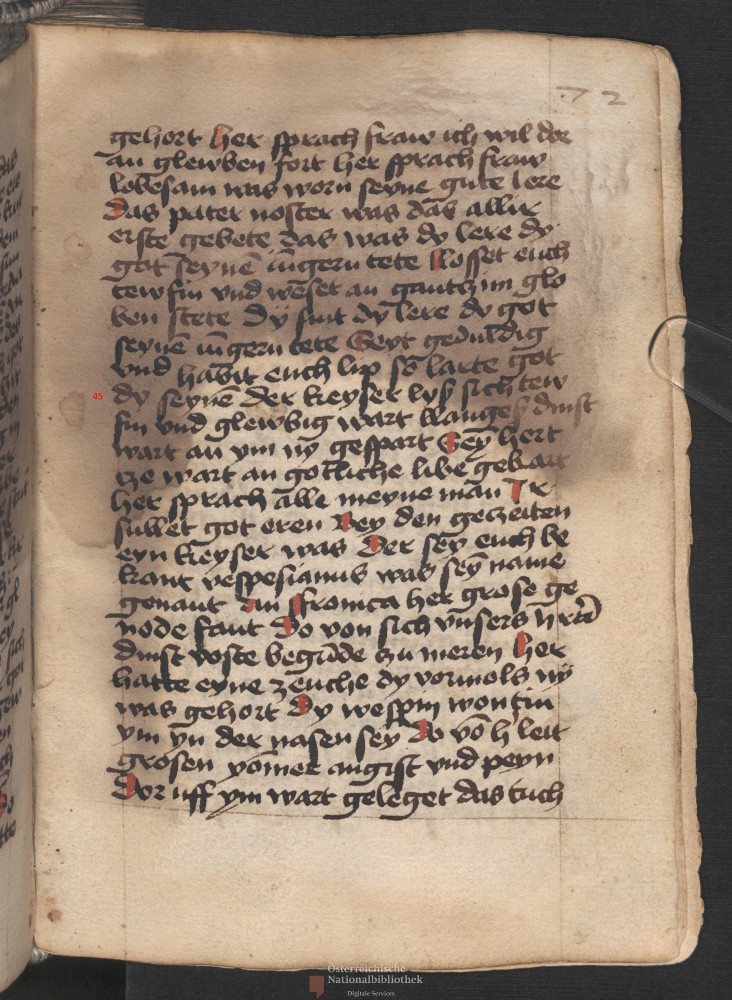 72
gehort her sprach fraw ich wil dor
an glewben fort her sprach fraw
lobesam was worn seyne gute lere
Das pater noster was das allir
erste gebete das was dy lere dy
got seynē iūgern tete losset euch
tewfin vnd weset an gantzim glo
ben stete Dy sint dy lere dy got
seynē iūgern tete Seyt geduldig
vnd habit euch lip so larte got
45
dy seynē der keyser lys sich tew
fin vnd glewbig wart dinst
wart an ym ny gespart Sey hert
cze wart an gotliche libe gekart
her sprach alle meyne man Ir
sullet got eren Bey den geczeiten
eyn keyser was Der sey euch be
kant vespesianus was sey name
genant fronica her grose ge
node fant Do von sich vnsers
dinst voste begūde zu meren her
hatte eyne zeuche dy vormols ny
was gehort Dy wespin wontin
ym yn der nasen sey Do vō h leit
grosen yomer angist vnd peyn
Dor uff ym wart geleget das tuch
Österreichische
Nationalbibliothek
Digitale Services